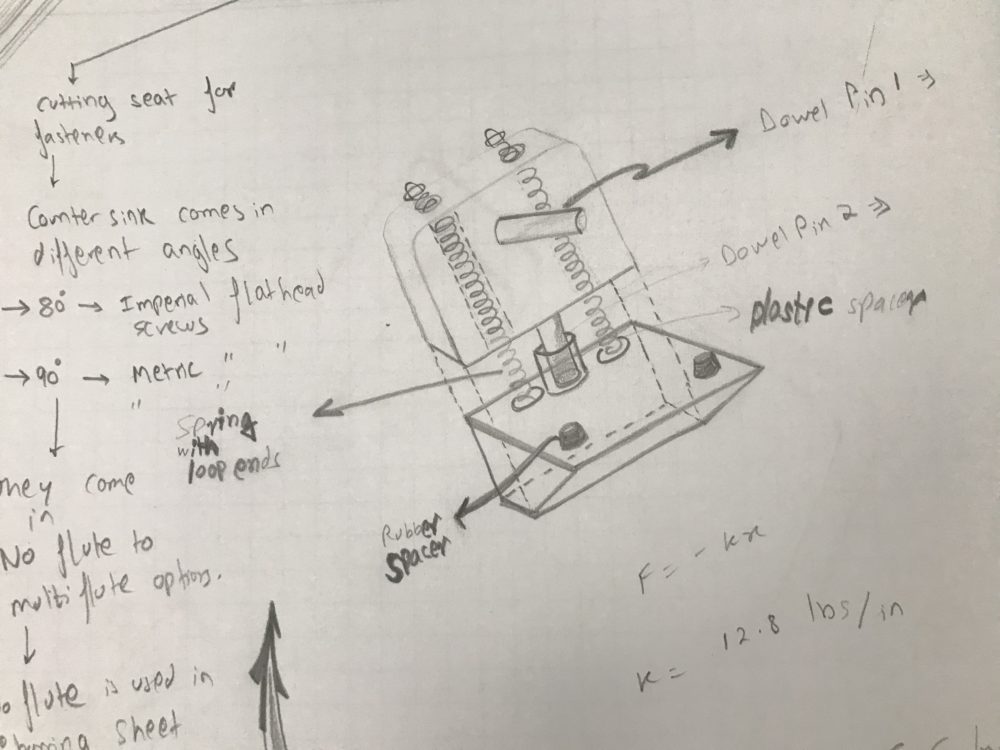 cutting seat for
fasteners
Counter sink comes in
different angles
→ 80° → Imperial flathead
screws
→ 90° → Metric " "
" "
They come
in
No flute to
multi flute options.
No flute is used in
sheet
Dowel Pin 1 ⇒
Dowel Pin 2 ⇒
plastic spacer
Spring
with
loop ends
Rubber
spacer
F = - kx
k = 12.8 lbs/in